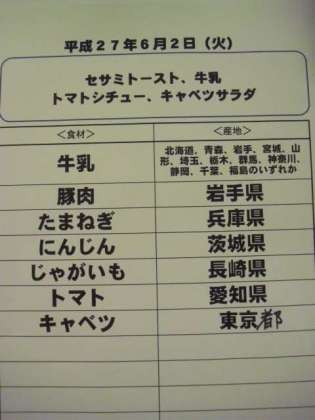 平成27年6月2日（火）
セサミトースト、牛乳
トマトシチュー、キャベツサラダ
＜食材＞ ＜産地＞
牛乳 北海道、青森、岩手、宮城、山
形、埼玉、栃木、群馬、神奈川、
静岡、千葉、福島のいずれか
豚肉 岩手県
たまねぎ 兵庫県
にんじん 茨城県
じゃがいも 長崎県
トマト 愛知県
キャベツ 東京都